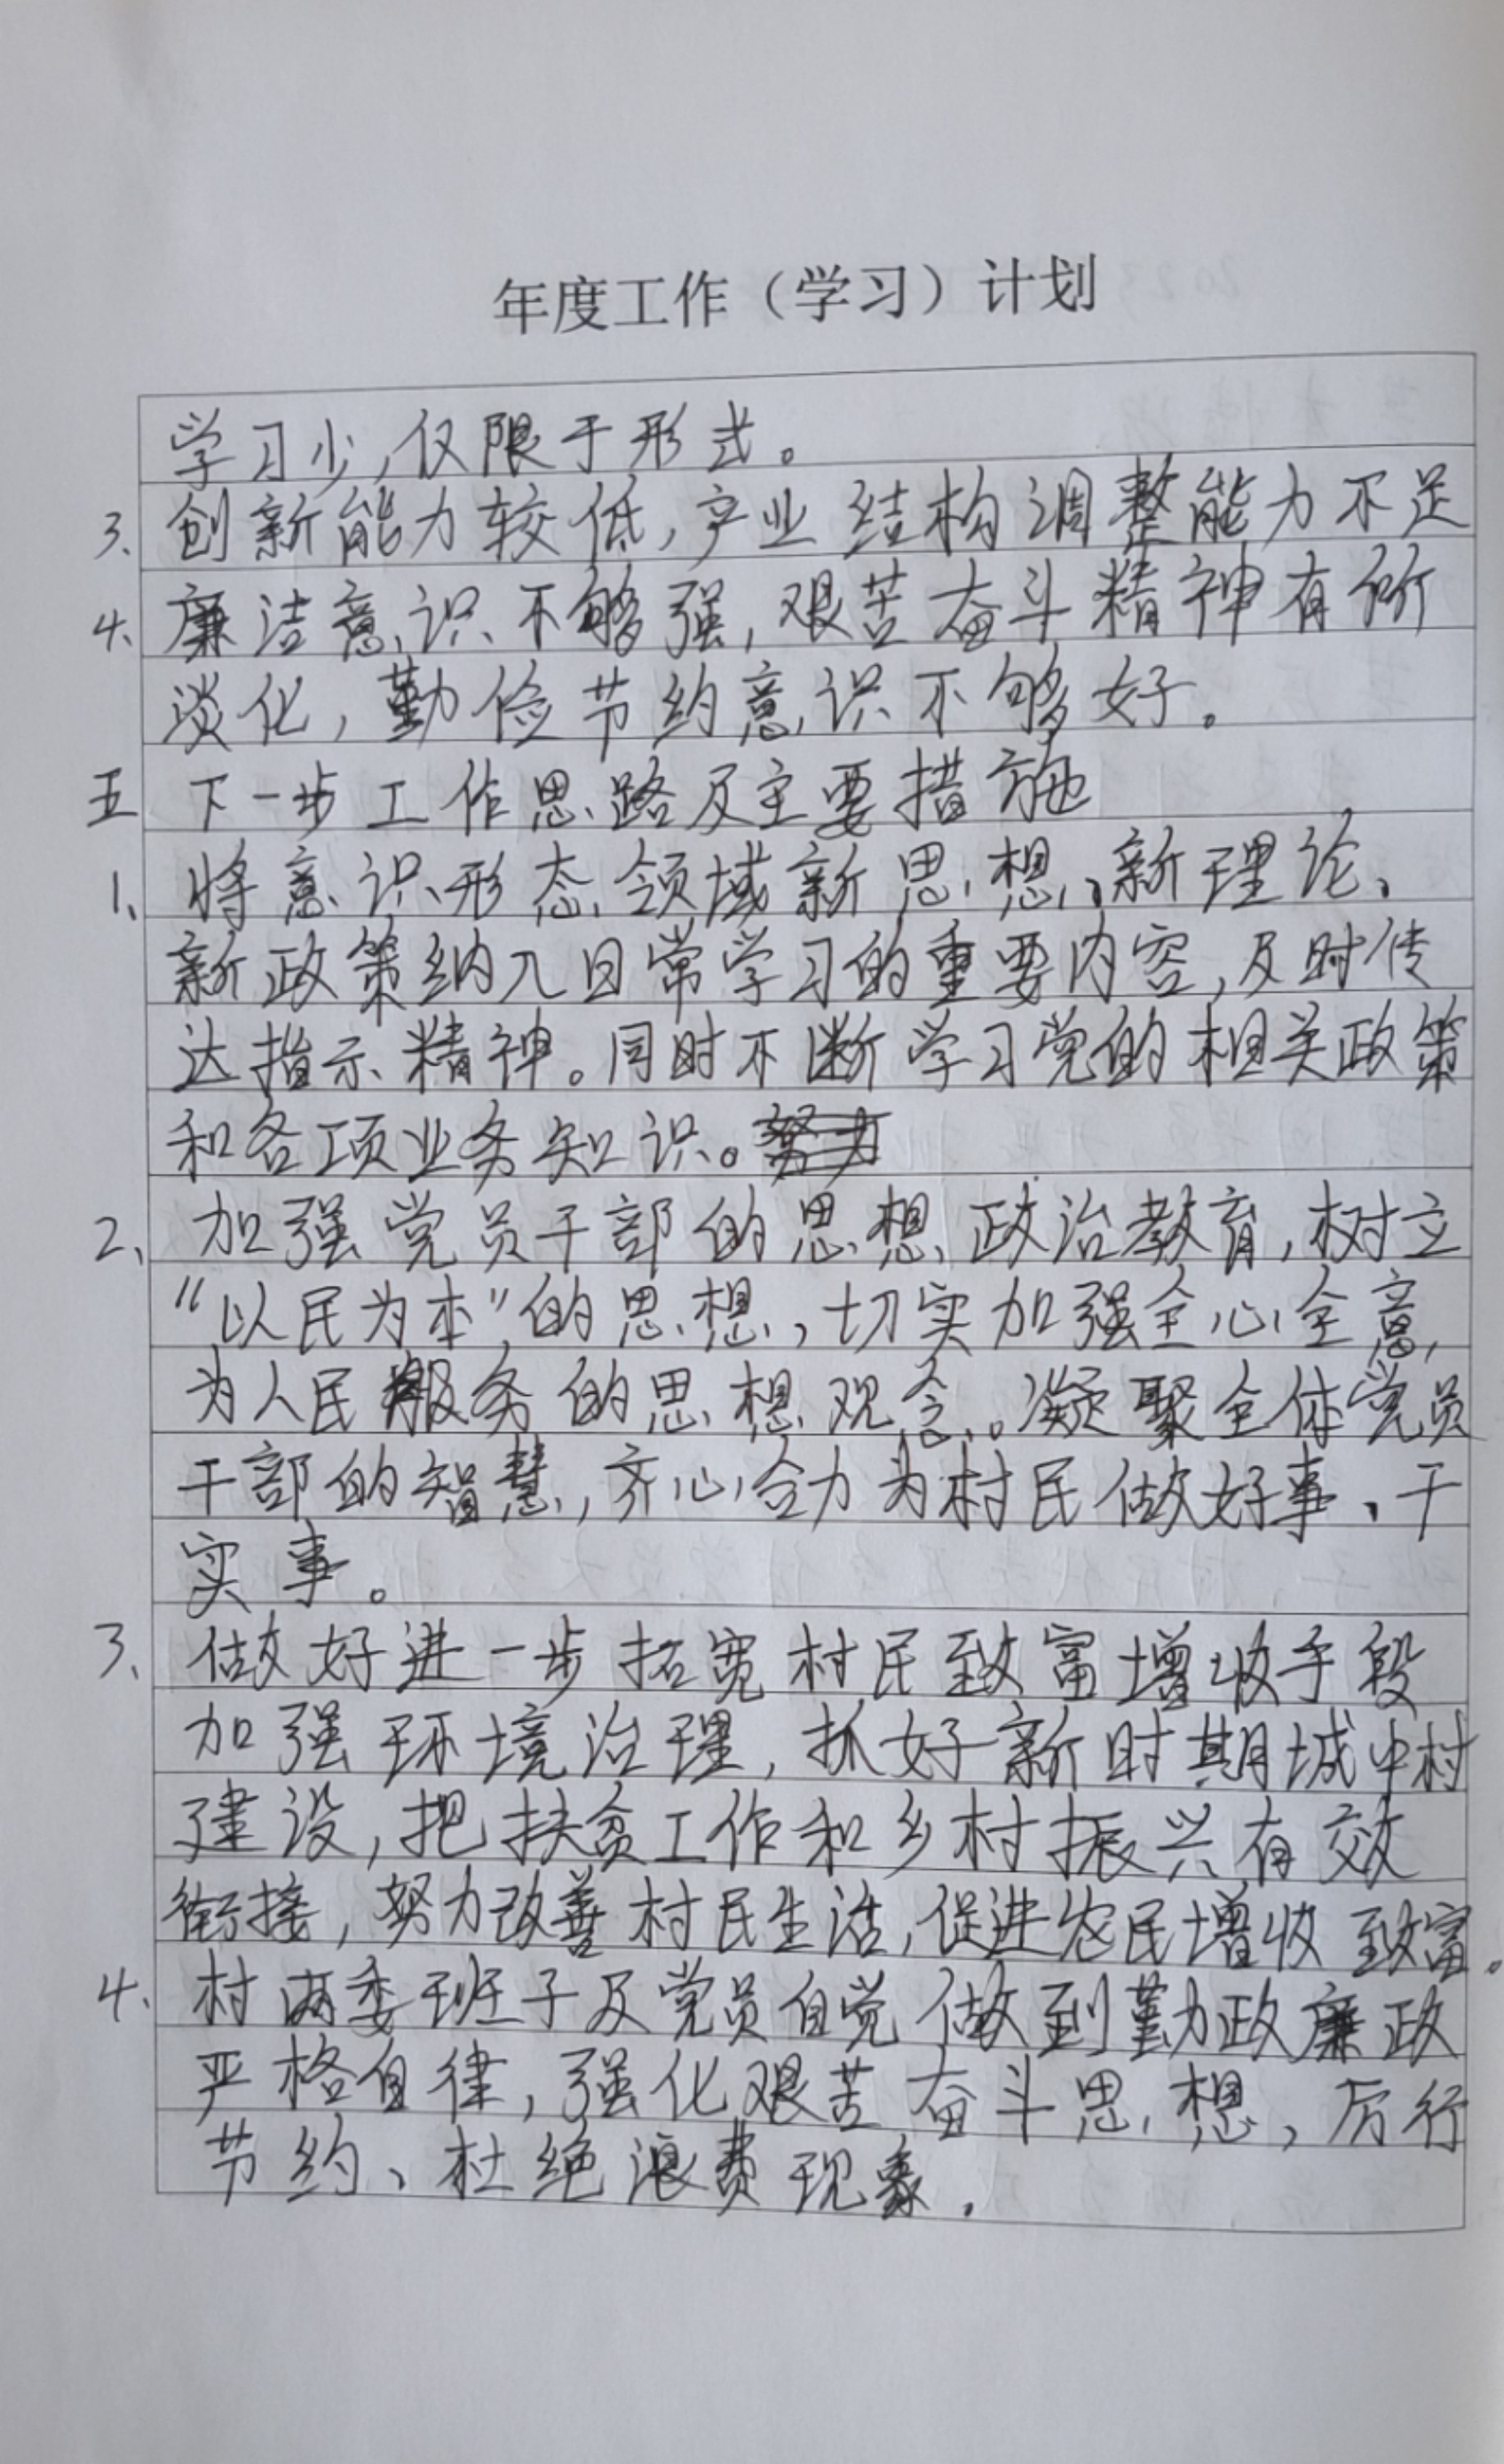 年度工作（学习）计划
学习少，仅限于形式。
3、创新能力较低，产业结构调整能力不足
4、廉洁意识不够强，艰苦奋斗精神有所
淡化，勤俭节约意识不够好。
五 下一步工作思路及主要措施
1、将意识形态领域新思想、新理论、
新政策纳入日常学习的重要内容，及时传
达指示精神。同时不断学习党的相关政策
和各项业务知识。努力
2、加强党员干部的思想政治教育，树立
“以民为本”的思想，切实加强全心全意，
为人民服务的思想观念。凝聚全体党员
干部的智慧，齐心合力为村民做好事、干
实事。
3、做好进一步拓宽村民致富增收手段
加强环境治理，抓好新时期城中村
建设，把扶贫工作和乡村振兴有效
衔接，努力改善村民生活，促进农民增收致富。
4、村两委班子及党员自觉做到勤政廉政
严格自律，强化艰苦奋斗思想，厉行
节约、杜绝浪费现象.